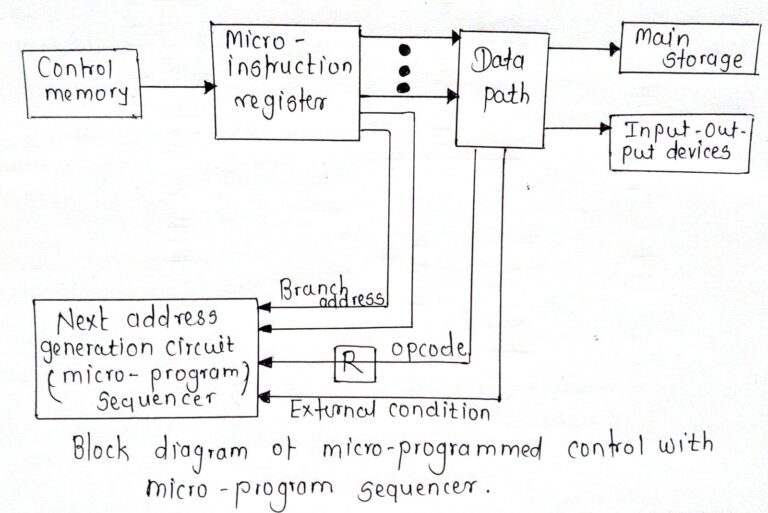 Control
memory
Micro-
instruction
register
Data
path
Main
storage
Input-Out-
put devices
Branch
address
Next address
generation circuit
(micro-program)
sequencer
R
opcode
External condition
Block diagram of micro-programmed control with
micro-program sequencer.